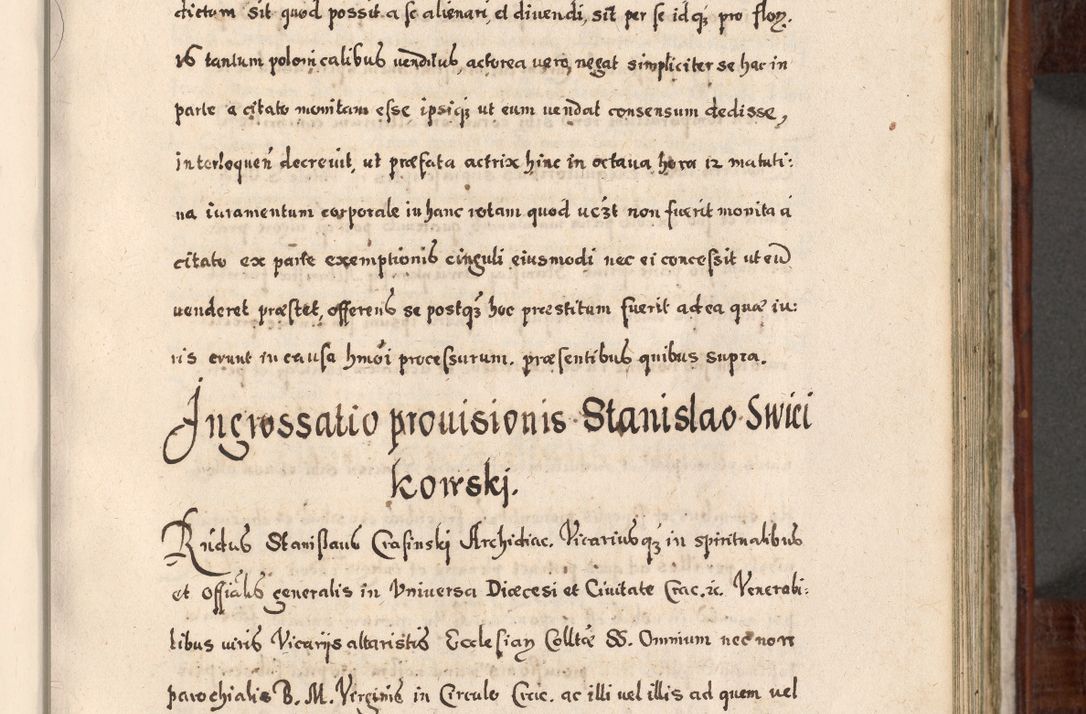 dictum sit quod possit a se alienari, et divendi, sit per se idq3 pro flor.
16 tantum polonicalibus venditus, actorea vero, negat simpliciter se hac in
parte a citato monitam esse ipsiq3 ut eum vendat consensum dedisse,
interloquen̄ decrevit, ut præfata actrix hinc in octava hora 12 matuti:
na iuramentum corporale in hanc rotam quod uc3t non fuerit monita a
citato ex parte exemptionis cinguli eiusmodi nec ei concessit ut eū
venderet præstet, offerens se postq3 hoc præstitum fuerit ad ea quæ iu:
ris erunt in causa hmōi processurum. præsentibus quibus supra.
Ingrossatio prouisionis Stanislao Swici
kowskj.
Rn̄dus Stanislaus Crasinskj Archidiac. Vicariusq3 in spiritualibus
et Offialis generalis in Vniuersa Diœcesi et Ciuitate Crac. ꝛc. Venerabi:
libus uiris Vicarijs altaristis Ecclesiar Colltæ SS. Omnium nec non
parochialis B. M. Virginis in Circulo Crac. ac illi uel illis ad quem vel